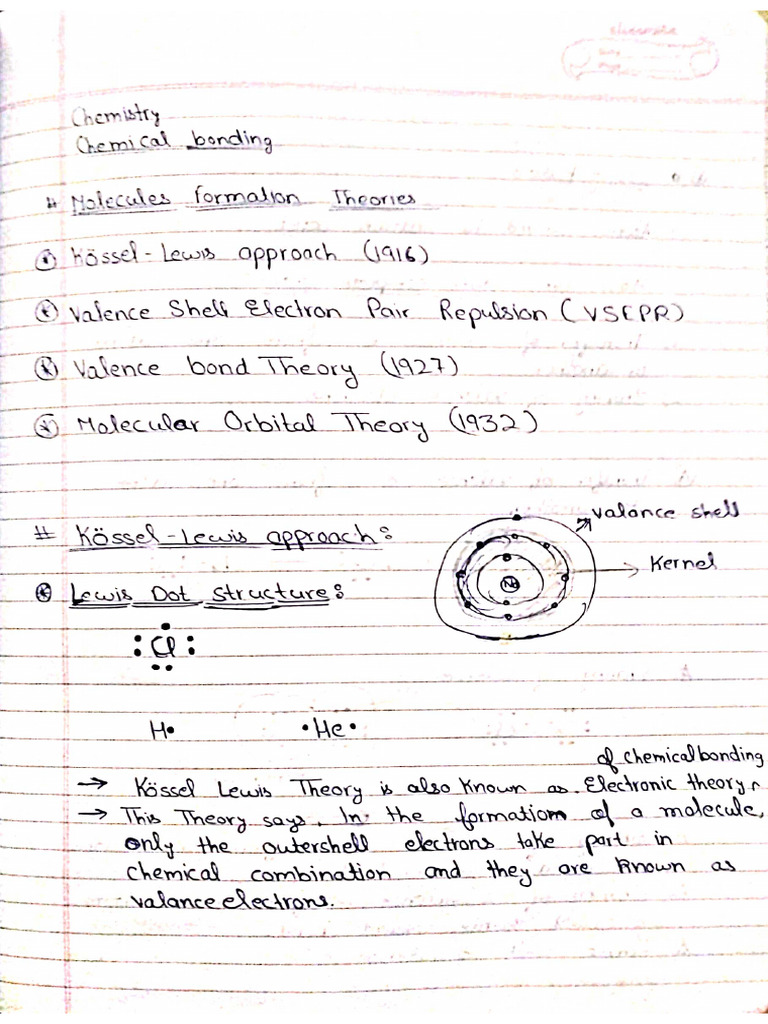 Chemistry
Chemical bonding
# Molecules formation Theories
* Kössel-Lewis approach (1916)
* Valence Shell Electron Pair Repulsion (VSEPR)
* Valence bond Theory (1927)
* Molecular Orbital Theory (1932)
valance shell
# Kössel-Lewis approach:
Kernel
Na
* Lewis Dot structure:
Cl
H• •He•
of chemical bonding
→ Kössel Lewis Theory is also known as Electronic theory
→ This Theory says, In the formation of a molecule,
only the outershell electrons take part in
chemical combination and they are known as
valance electrons.